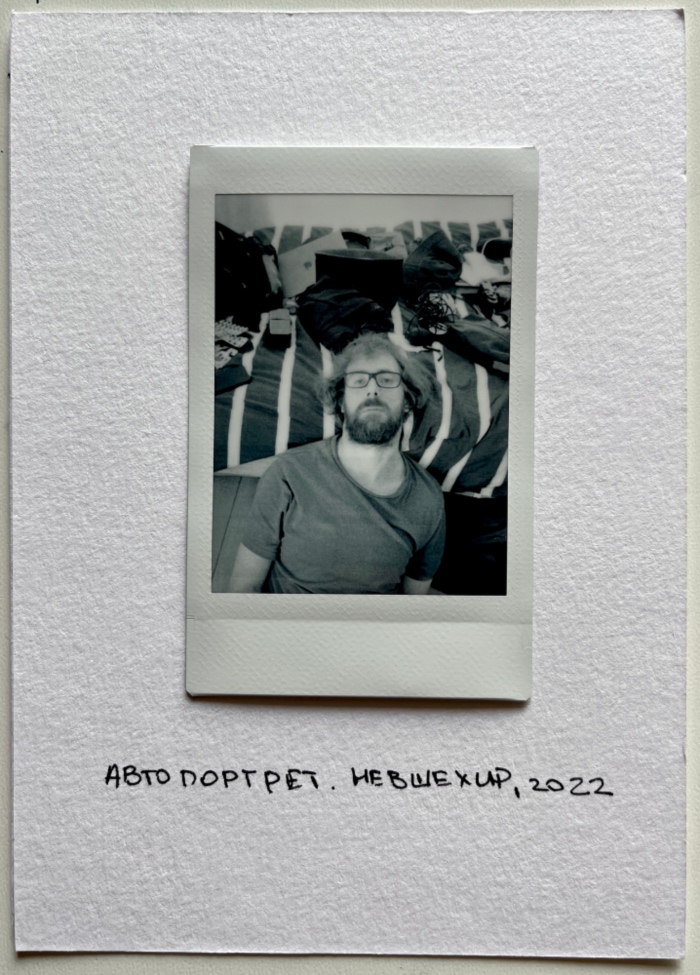 АВТОПОРТРЕТ. НЕВШЕХИР, 2022